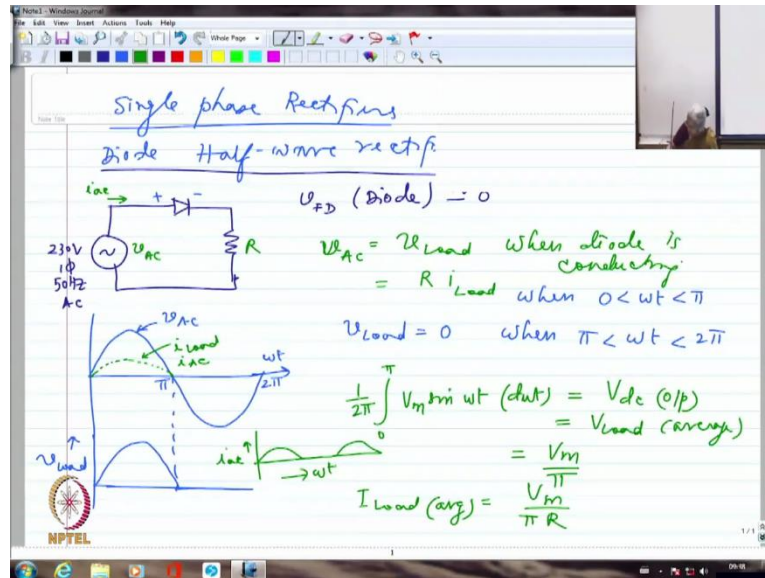 Note1 - Windows Journal
File Edit View Insert Actions Tools Help
Whole Page
B I
Note Title
Single phase Rectifiers
Diode Half-wave rectifi
iac
+ -
VFD (Diode) = 0
230V
1φ
50Hz
AC
VAC
R
+
VAC = VLoad when diode is
conducting
= R iLoad when 0 < ωt < π
VLoad = 0 when π < ωt < 2π
VAC
iLoad
iAC
ωt
π 2π
1/2π ∫0^π Vm sin ωt (dωt) = Vdc (o/p)
= VLoad (average)
= Vm/π
VLoad
iac
ωt
ILoad (avg) = Vm/πR
NPTEL
1/1
1
09:48